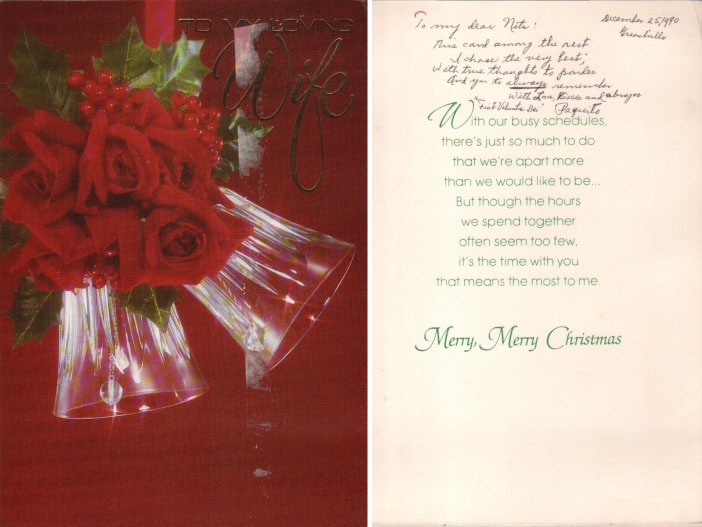 TO MY LOVING
Wife
December 25, 1990
Greenhills
To my dear Nita:
This card among the rest
I chose the very best;
With true thoughts to ponder
And you to always remember
With Love, Kisses and abrazos
Paquito
With our busy schedules,
there's just so much to do
that we're apart more
than we would like to be...
But though the hours
we spend together
often seem too few,
it's the time with you
that means the most to me.
Merry, Merry Christmas